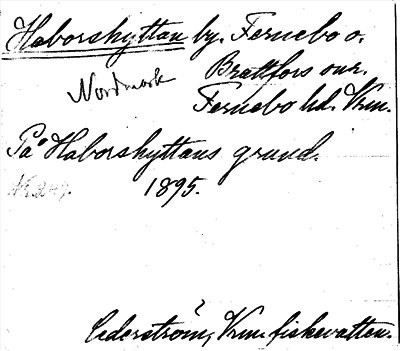 Haborshyttan by. Fernebo o.
Brattfors snr.
Nordmark
Fernebo hd. Vrm.
På Haborshyttans grund.
1895.
?
Cederström, Vrm. fiskevatten.